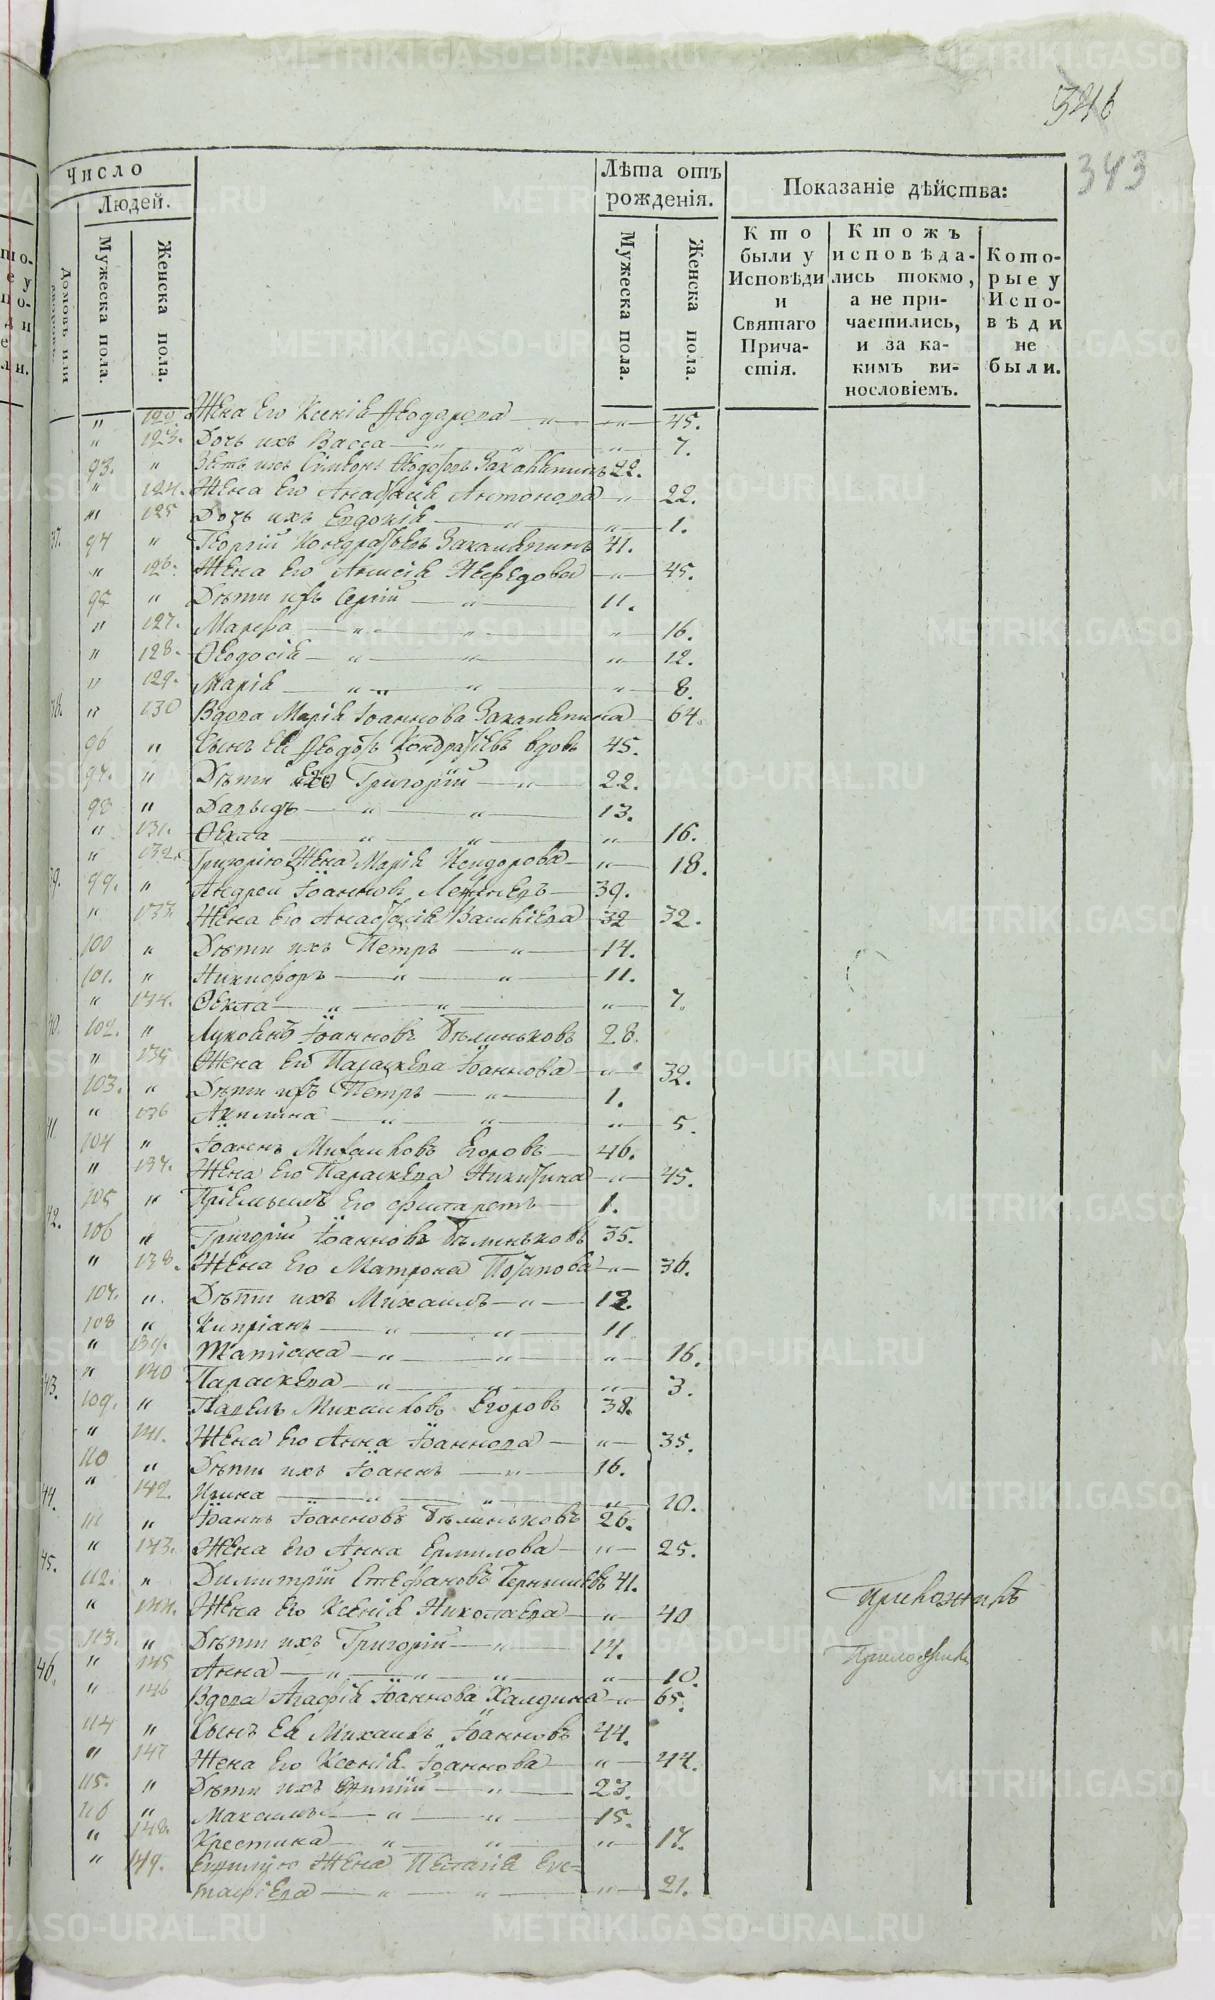 346
343
Число
Людей.
Домовъ или
Мужеска пола.
Женска пола.
Лѣта отъ рожденія.
Мужеска пола.
Женска пола.
Показаніе дѣйства:
Кто были у Исповѣди и Святаго Причастія.
Ктожъ исповѣдались токмо, а не причастились, и за какимъ винословіемъ.
Которые у Исповѣди не были.
" 122. Жена Его Ксенія Ѳеодорова — " — 45.
" 123. Дочь ихъ Васса — " 7.
93. " Зять ихъ Сѵмеонъ Ѳеодоровъ 22.
" 124. Жена Его Анастасія Антонова — " 22.
" 125 Дочь ихъ Евдокія — " — " 1.
37. 94 " Георгій Кондратьевъ 41.
" 126. Жена Его Анисія — " — 45.
95 " Дѣти ихъ Сергій — " — 11.
" 127. Марѳа — " — " — " 16.
" 128. Ѳеодосія — " — " — " 12.
" 129. Марія — " " — " — " 8.
38. " 130 Вдова Марія Іоаннова — 64.
96 " Сынъ Ея Ѳеодоръ Кондратьевъ вдовъ 45.
97. " Дѣти Его Григорій — " — 22.
98 " Давыдъ — " — " — 13.
" 131. Ѳекла — " — " — " 16.
" 132. Григорію Жена Марія — " — 18.
39. 99. " Андрей Іоанновъ — 39.
" 133. Жена Его Анастасія Васильева 32 32.
100 " Дѣти ихъ Петръ — " — 14.
101. " Никифоръ — " — " — 11.
" 134. Ѳекла — " — " — " 7.
40. 102. " Іоанновъ Бѣлиньковъ 28.
" 135 Жена Его Параскева Іоаннова — " 32.
103. " Дѣти ихъ Петръ — " — 1.
" 136 Акилина — " — " — " 5.
41. 104 " Іоаннъ Михаиловъ Егоровъ — 46.
" 137. Жена Его Параскева Никитина — " — 45.
105 " Пріемышъ Его Филаретъ — 1.
42. 106 " Григорій Іоанновъ Бѣлиньковъ 35.
" 138. Жена Его Матрона Потапова — " — 36.
107. " Дѣти ихъ Михаилъ — " — 12.
108 " Кипріанъ — " — " — 11
" 139. Татіана — " — " — " 16.
" 140 Параскева — " — " — " 3.
43. 109. " Павелъ Михаиловъ Егоровъ 38.
" 141. Жена Его Анна Іоаннова — " — 35.
110 " Дѣти ихъ Іоаннъ — " — 16.
" 142. Ирина — " — " — " 10.
44. 111 " Іоаннъ Іоанновъ Бѣлиньковъ 26.
" 143. Жена Его Анна Ермилова — " — 25.
45. 112. " Димитрій Стефановъ Чернышевъ 41.
" 144. Жена Его Ксенія Николаева — " — 40
113. " Дѣти ихъ Григорій — " — 14.
" 145 Анна — " — " — " — " 10.
46. " 146 Вдова Агафія Іоаннова Халдина — " — 65.
114 " Сынъ Ея Михаилъ Іоанновъ 44.
" 147 Жена Его Ксенія Іоаннова — " — 44.
115. " Дѣти ихъ — " — 23.
116 " Максимъ — " — " — 15.
" 148. Христина — " — " — " 17.
" 149. Жена Пелагія Евстафіева — " — " — " 21.